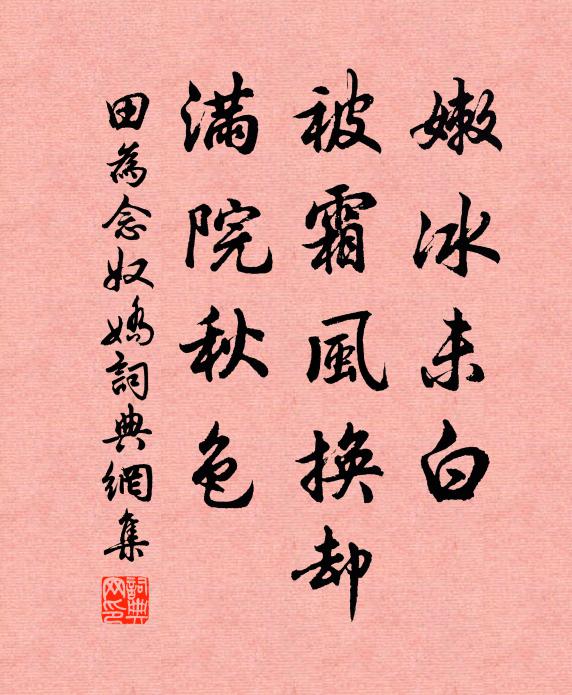 嫩冰未白
被霜風換却
滿院秋色
田為念奴嬌詞典網集
詞典網印